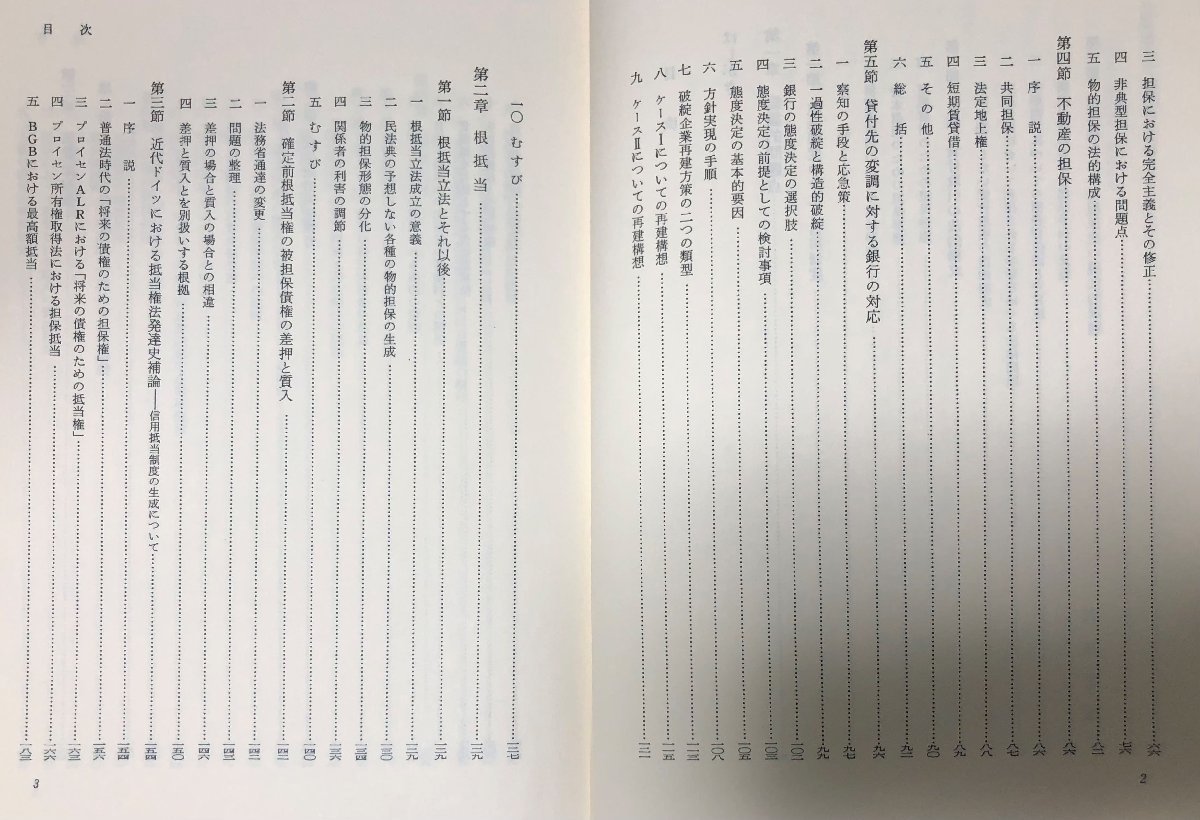 三 担保における完全主義とその修正……六六
四 非典型担保における問題点……七六
五 物的担保の法的構成……八二
第四節 不動産の担保……八六
一 序説……八六
二 共同担保……八七
三 法定地上権……八八
四 短期賃貸借……八九
五 その他……九〇
六 総括……九二
第五節 貸付先の変調に対する銀行の対応……九六
一 察知の手段と応急策……九七
二 一過性破綻と構造的破綻……九九
三 銀行の態度決定の選択肢……一〇二
四 態度決定の前提としての検討事項……一〇三
五 態度決定の基本的要因……一〇五
六 方針実現の手順……一〇八
七 破綻企業再建方策の二つの類型……一一三
八 ケースⅠについての再建構想……一一五
九 ケースⅡについての再建構想……一二一
2
目次
一〇 むすび……一二七
第二章 根抵当……一二九
第一節 根抵当立法とそれ以後……一二九
一 根抵当立法成立の意義……一二九
二 民法典の予想しない各種の物的担保の生成……一三〇
三 物的担保形態の分化……一三四
四 関係者の利害の調節……一三六
五 むすび……一四〇
第二節 確定前根抵当権の被担保債権の差押と質入……一四二
一 法務省通達の変更……一四二
二 問題の整理……一四三
三 差押の場合と質入の場合との相違……一四六
四 差押と質入とを別扱いする根拠……一五〇
第三節 近代ドイツにおける抵当権法発達史補論――信用抵当制度の生成について……一五四
一 序説……一五四
二 普通法時代の「将来の債権のための担保権」……一五六
三 プロイセンALRにおける「将来の債権のための抵当権」……一六三
四 プロイセン所有権取得法における担保抵当……一六六
五 BGBにおける最高額抵当……一八三
3